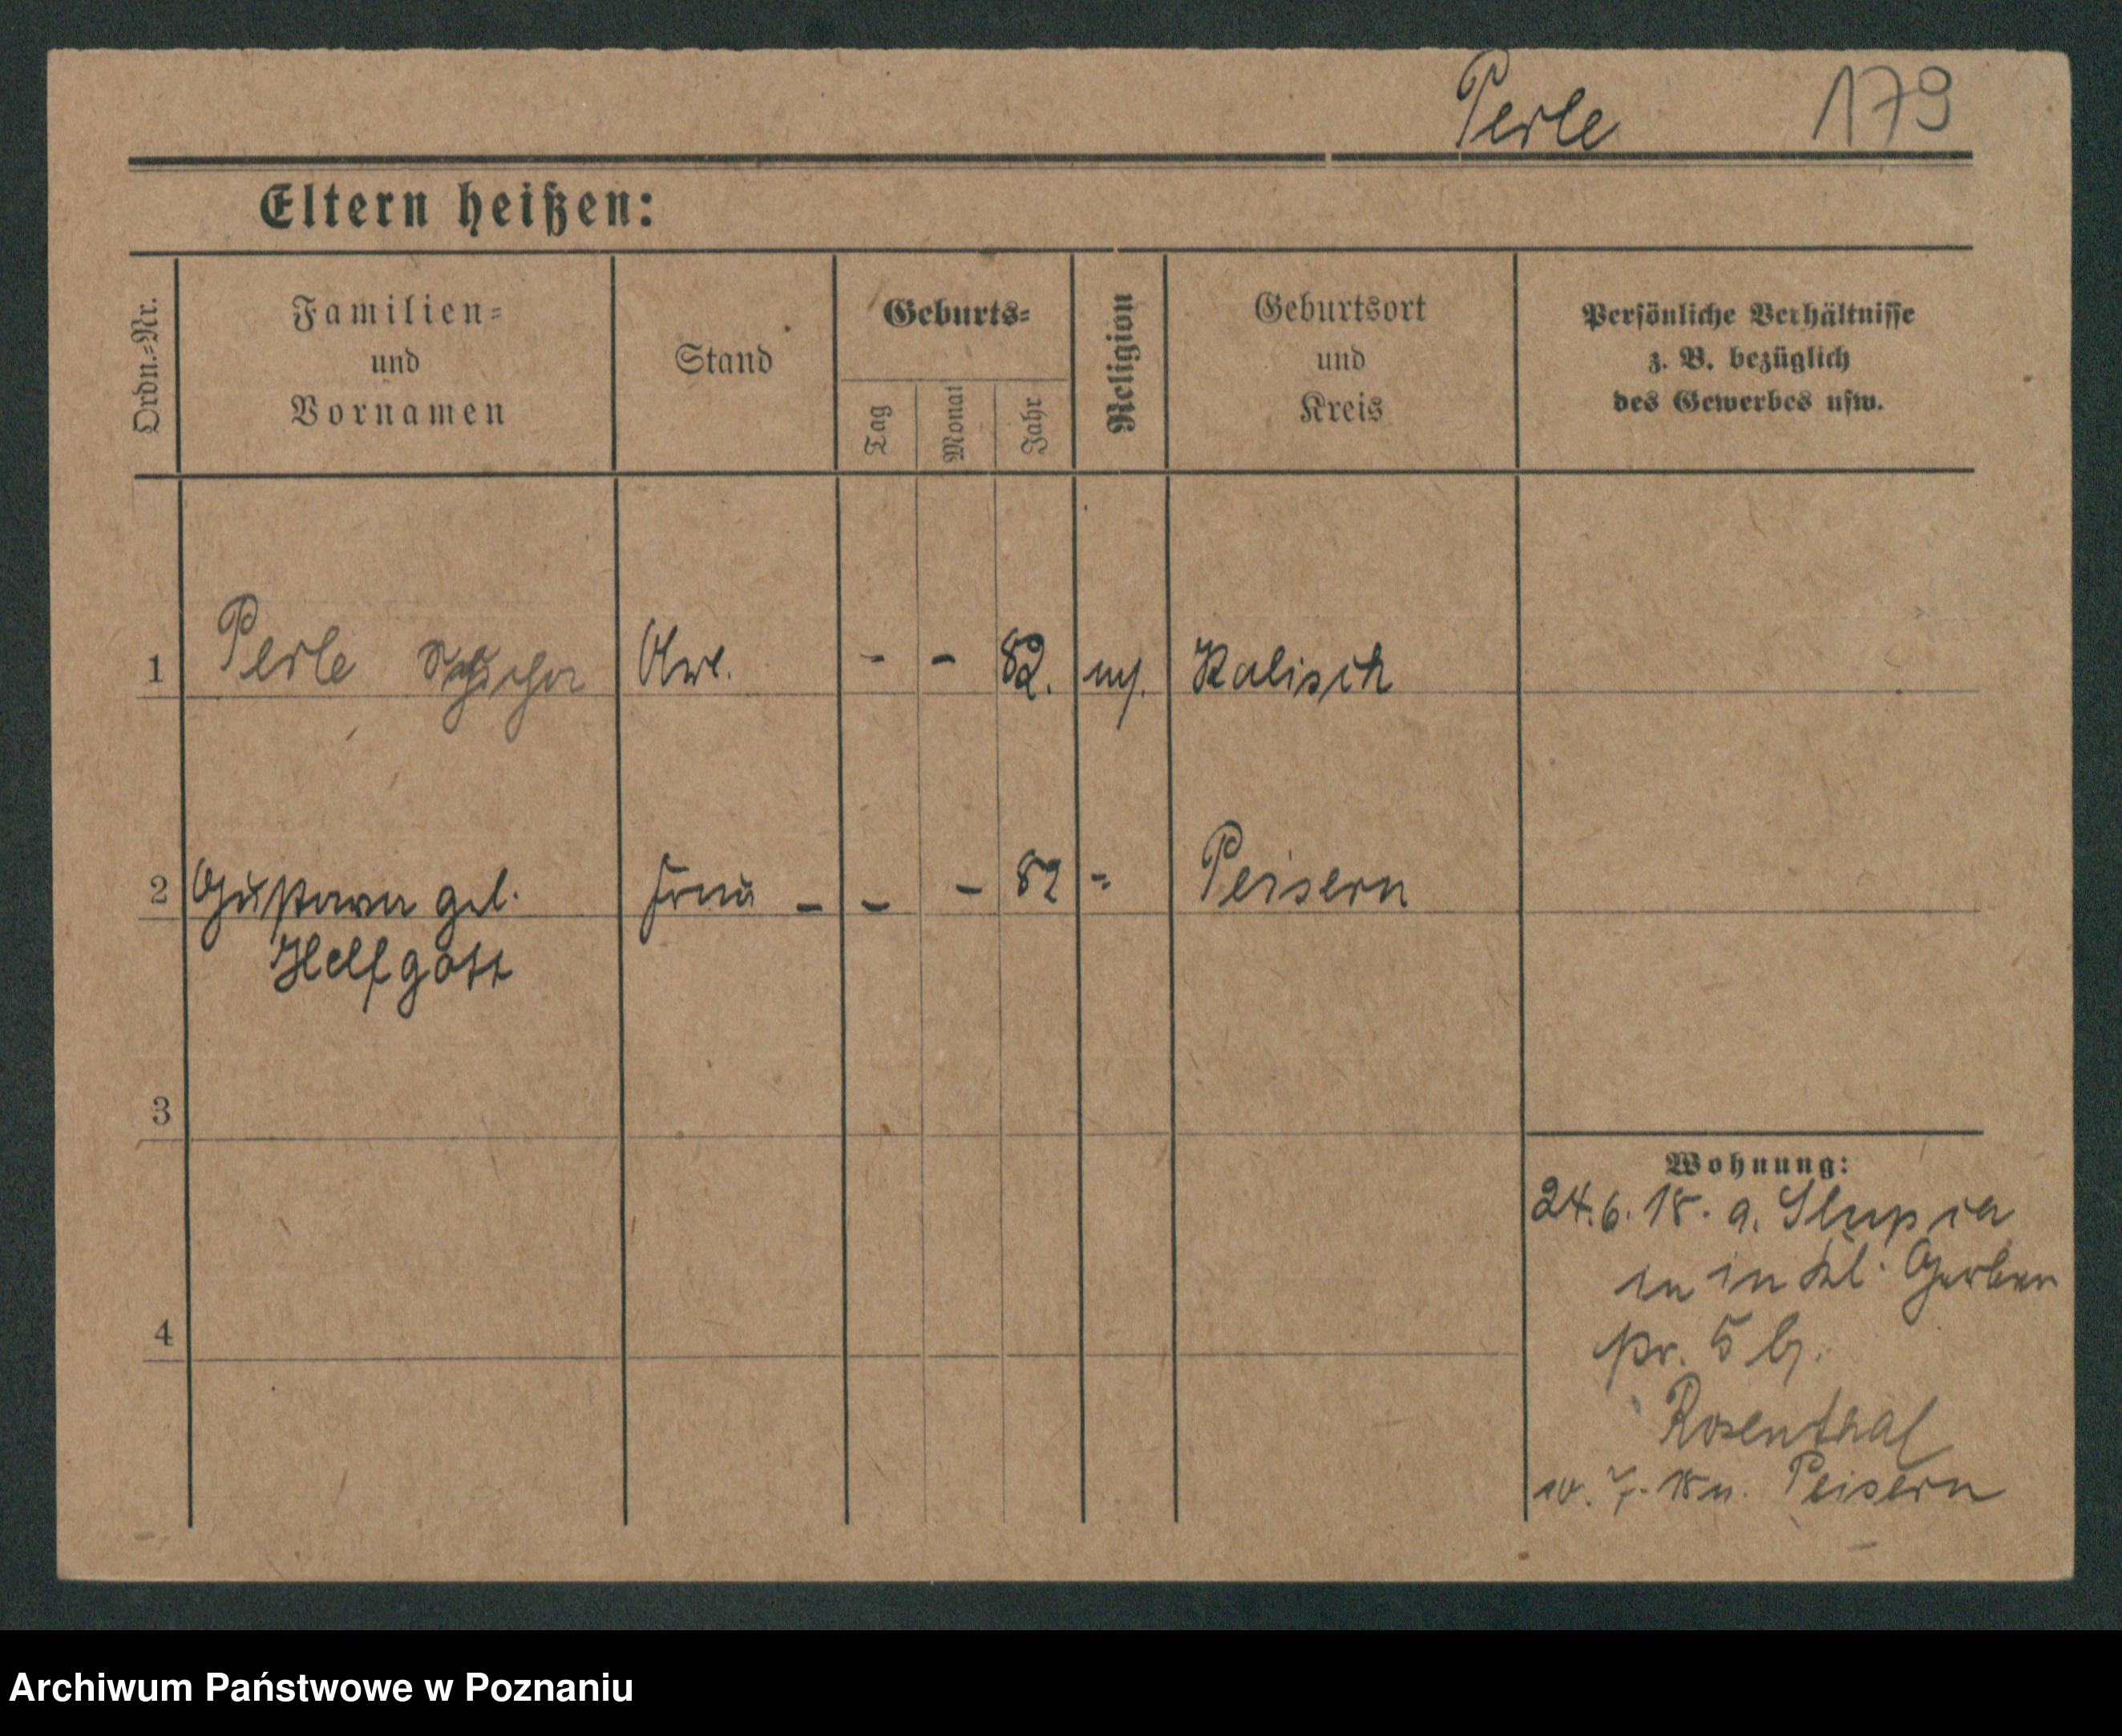 Perle 179
Eltern heißen:
Ordn.=Nr.
Familien=
und
Vornamen
Stand
Geburts=
Tag
Monat
Jahr
Religion
Geburtsort
und
Kreis
Persönliche Verhältnisse
z. B. bezüglich
des Gewerbes usw.
1 Perle - - 82. Kalisch
2 Gustava geb. Frau - - - 82 - Peisern
Helfgott
3
4
Wohnung:
24.6.18. a. Slupia
in Kl. Gerber
pr. 5 b.
Rosenthal
10. 7. 18 n. Peisern
Archiwum Państwowe w Poznaniu